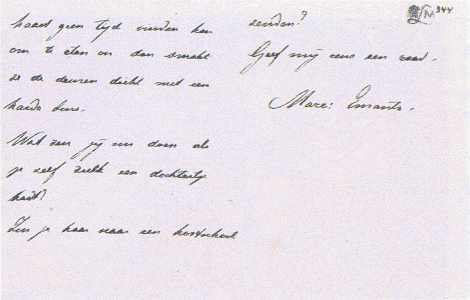 haast geen tijd vinden kan
om te eten en dan smakt
ze de deuren dicht met een
harde bons.
Wat zou jij nu doen als
je zelf zulk een dochtertje
hadt?
Zou je haar naar een kostschool
zenden?
Geef mij eens een raad.
Marc: Emants.
344